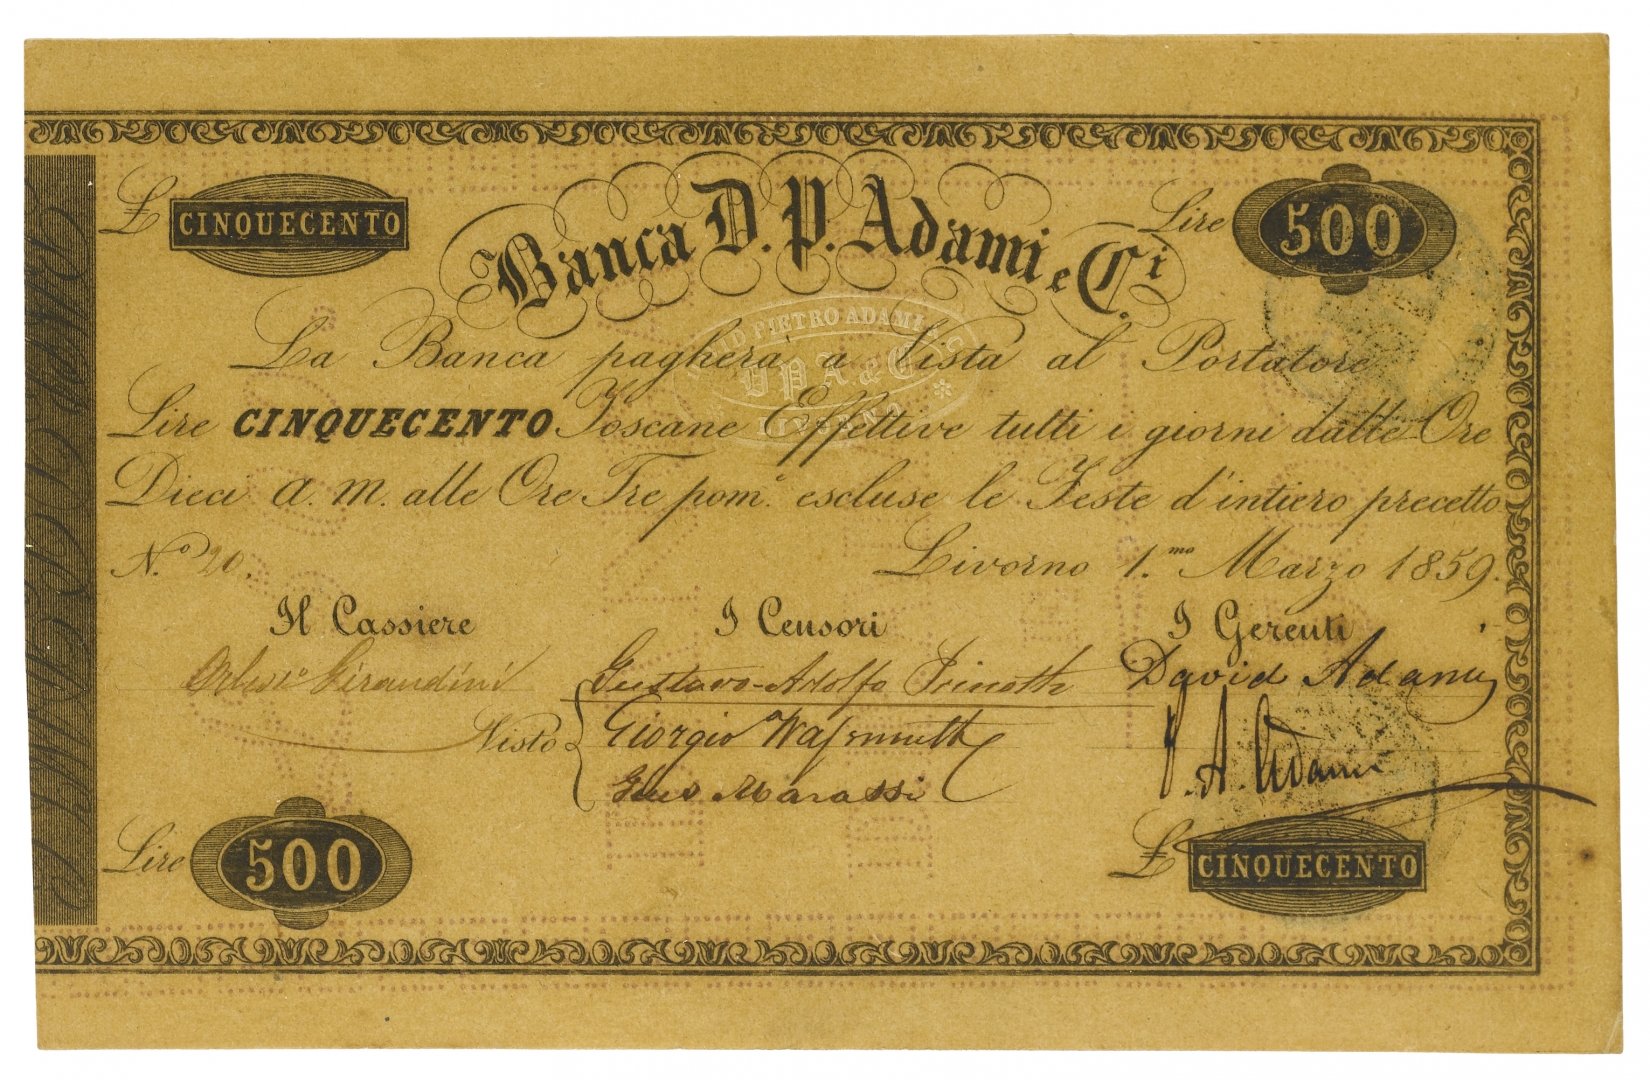 Banca D. P. Adami e C.i
£ CINQUECENTO
Lire 500
DAVID PIETRO ADAMI & C.
D P A & C.
LIVORNO
La Banca pagherà a Vista al Portatore
Lire CINQUECENTO Toscane Effettive tutti i giorni dalle Ore
Dieci a. m. alle Ore Tre pom.e escluse le Feste d'intiero precetto
N.o 20. Livorno 1.mo Marzo 1859.
Il Cassiere I Censori I Gerenti
Girandini Gustavo Adolfo David Adami
Visto Giorgio P. A. Adami
Marassi
Lire 500
£ CINQUECENTO